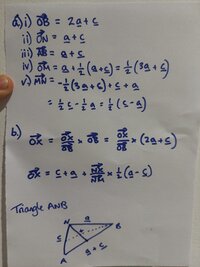 a) i) OB = 2a + c
ii) ON = a + c
iii) AB = a + c
iv) OM = a + ½(a+c) = ½(3a+c)
v) MN = -½(3a+c) + c + a
= ½c - ½a = ½(c-a)
b) OX = OX/OB × OB = OX/OB × (2a+c)
OX = c + a + NX/NM × ½(a-c)
Triangle ANB
N a B
c x
A a+c